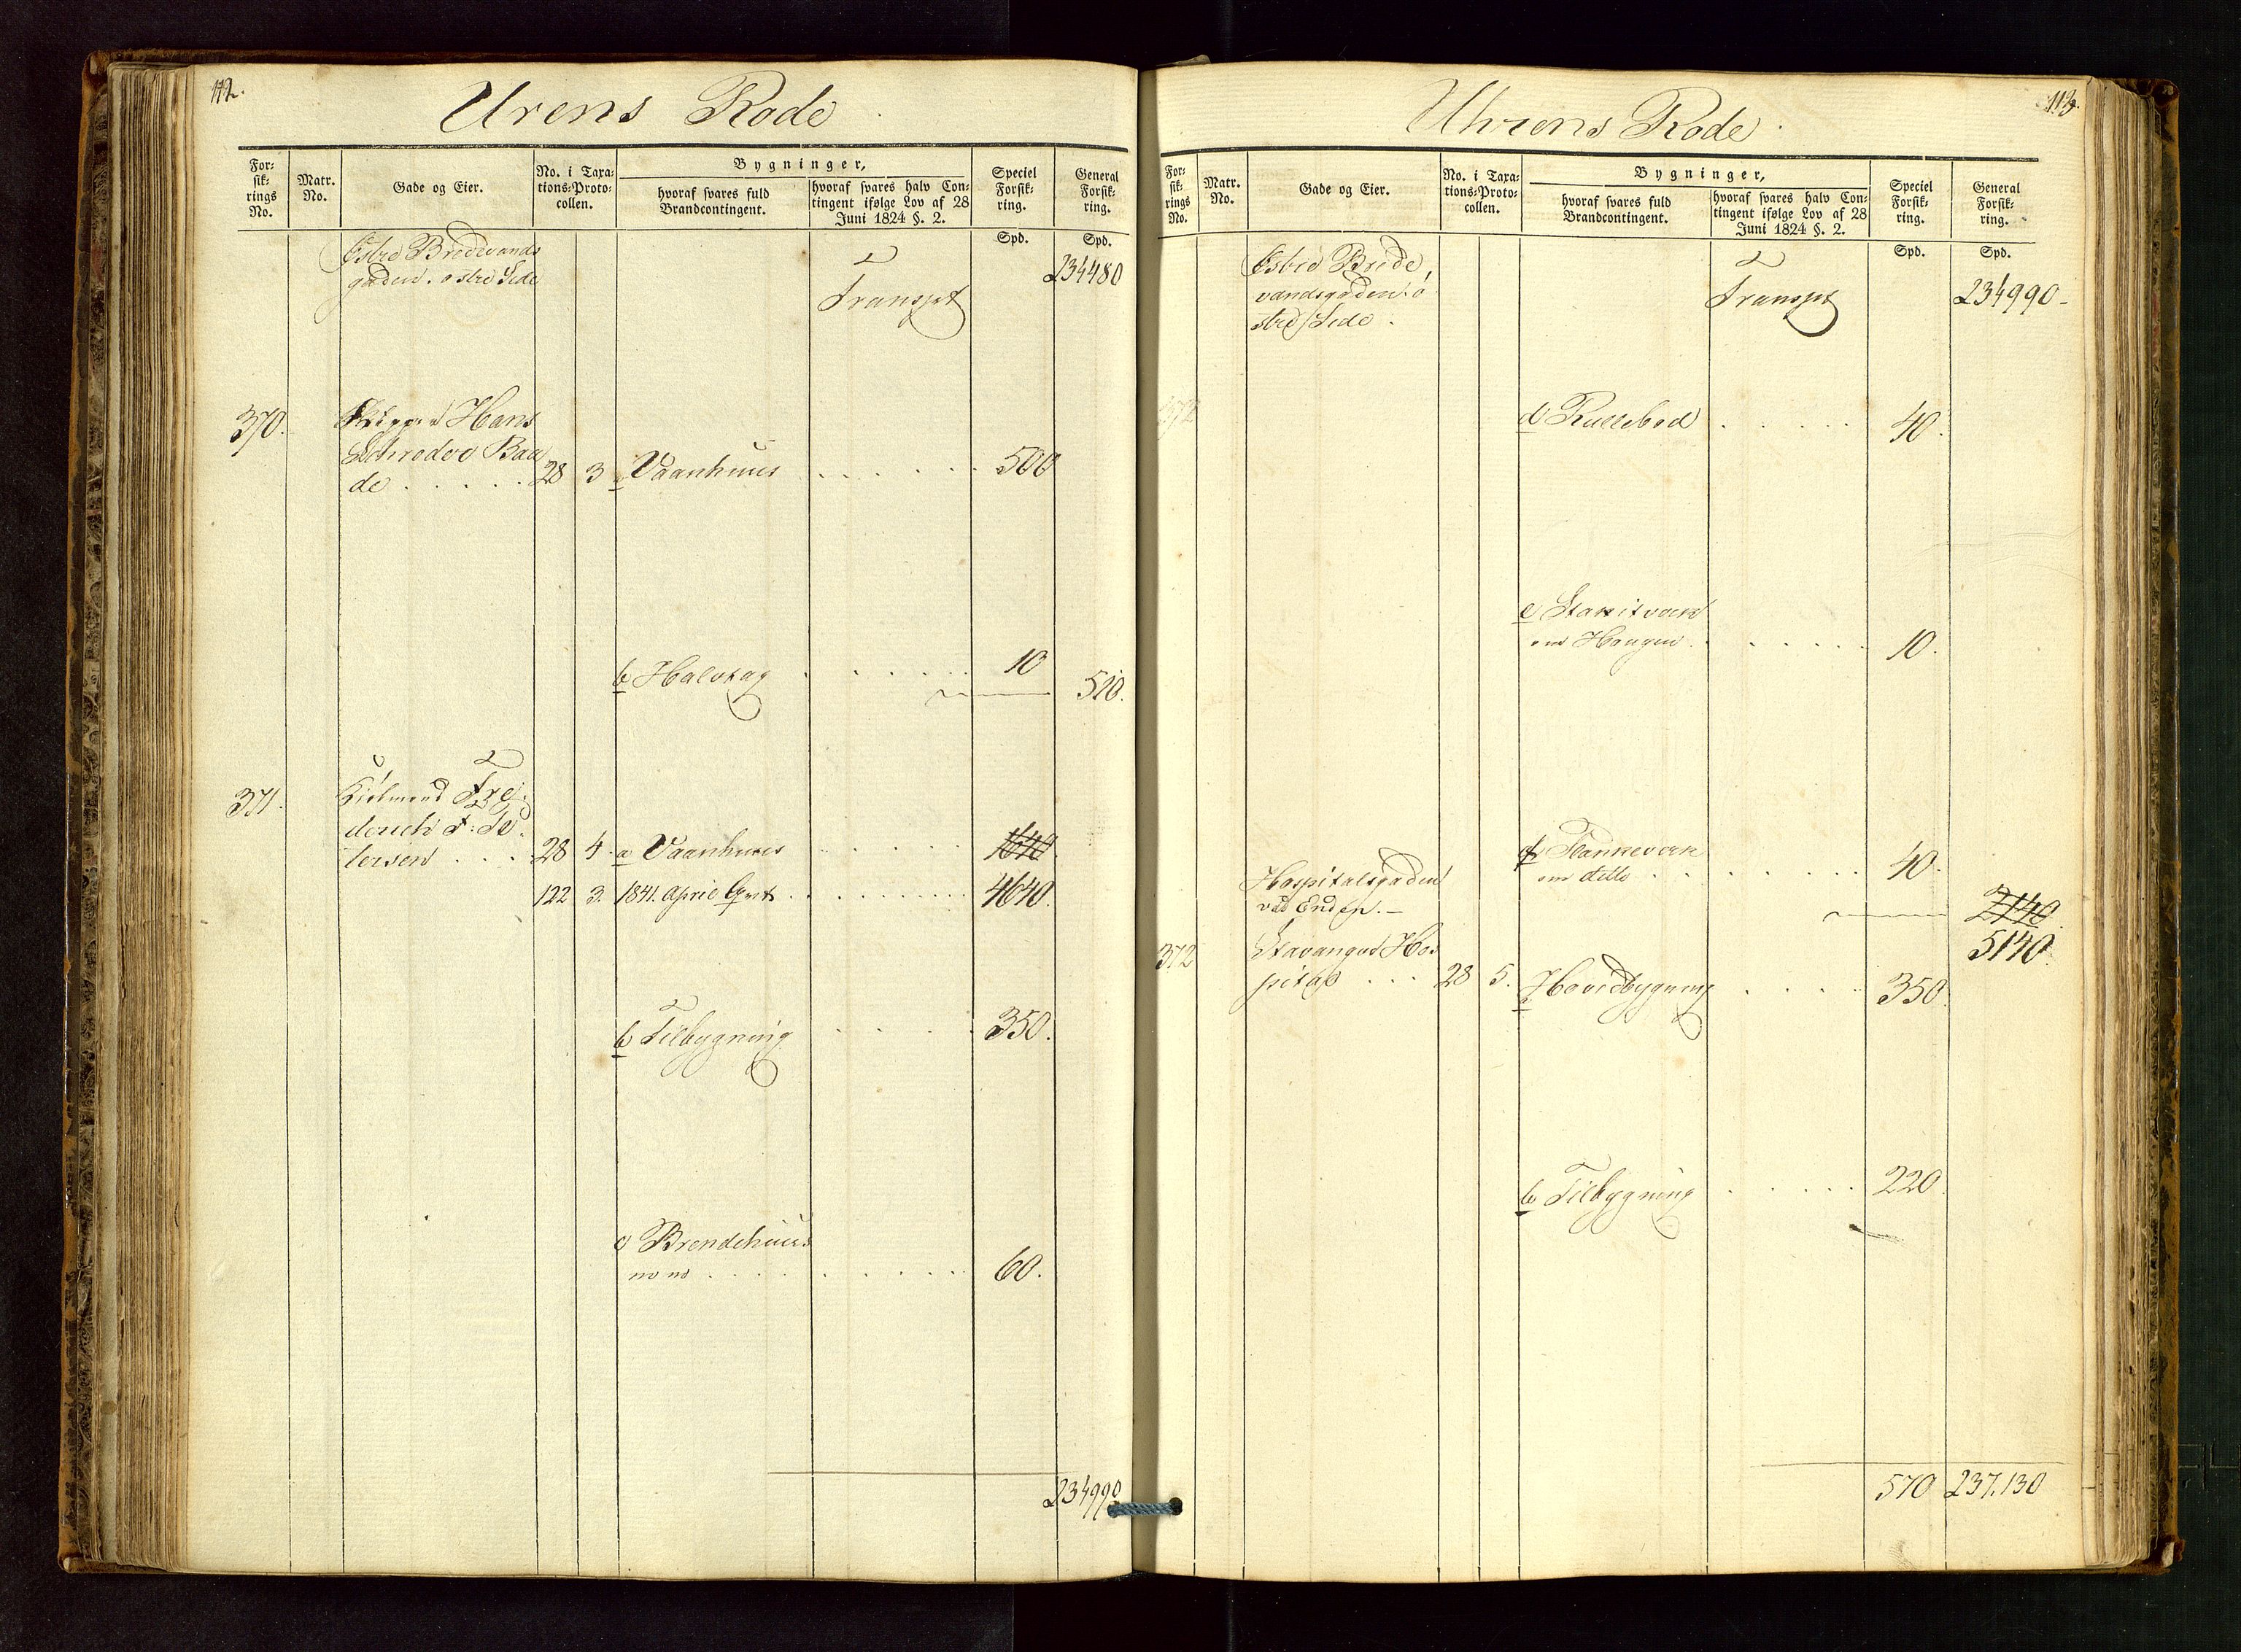 112.
Urens Rode
For-
sik-
rings
No.
Matr.
No.
Gade og Eier.
No. i Taxa-
tions-Proto-
collen.
Bygninger,
hvoraf svares fuld
Brandcontingent.
hvoraf svares halv Con-
tingent ifølge Lov af 28
Juni 1824 §. 2.
Speciel
Forsik-
ring.
General
Forsik-
ring.
Spd. Spd.
Østre Bredevands
gaden. østre Side
Transpt
234480
370. Skipper Hans
Schrøder Baa
de . . . . . 28 3 a Vaanhuus . . . . . . 500
b Halvtag . . . . . 10
510.
371. Kiøbmand Fre-
derich T: Pe-
tersen . . . 28 4. a Vaanhuus . . . . . 1640.
122 3. 1841. April Qvrt . . . . . . . . 4640.
b Tilbygning . . . . 350.
c Brendehuus
60.
234990
113.
Uhrens Rode.
For-
sik-
rings
No.
Matr.
No.
Gade og Eier.
No. i Taxa-
tions-Proto-
collen.
Bygninger,
hvoraf svares fuld
Brandcontingent.
hvoraf svares halv Con-
tingent ifølge Lov af 28
Juni 1824 §. 2.
Speciel
Forsik-
ring.
General
Forsik-
ring.
Spd. Spd.
Østre Brede,
vandsgaden. ø
stre Side.
Transpt
234990-
372
d Rullebod . . . . . 40.
e Stakitværk
om Haugen . . . . . . 10.
f Plankeværk
om ditto . . . . . . . . 40.
Hospitalsgaden
ved Enden.-
2140.
5140.
372 Stavanger Hos
pital . . . 28 5. a Hovedbygning . . . . 350.
b Tilbygning . . . . . 220.
570 237.130